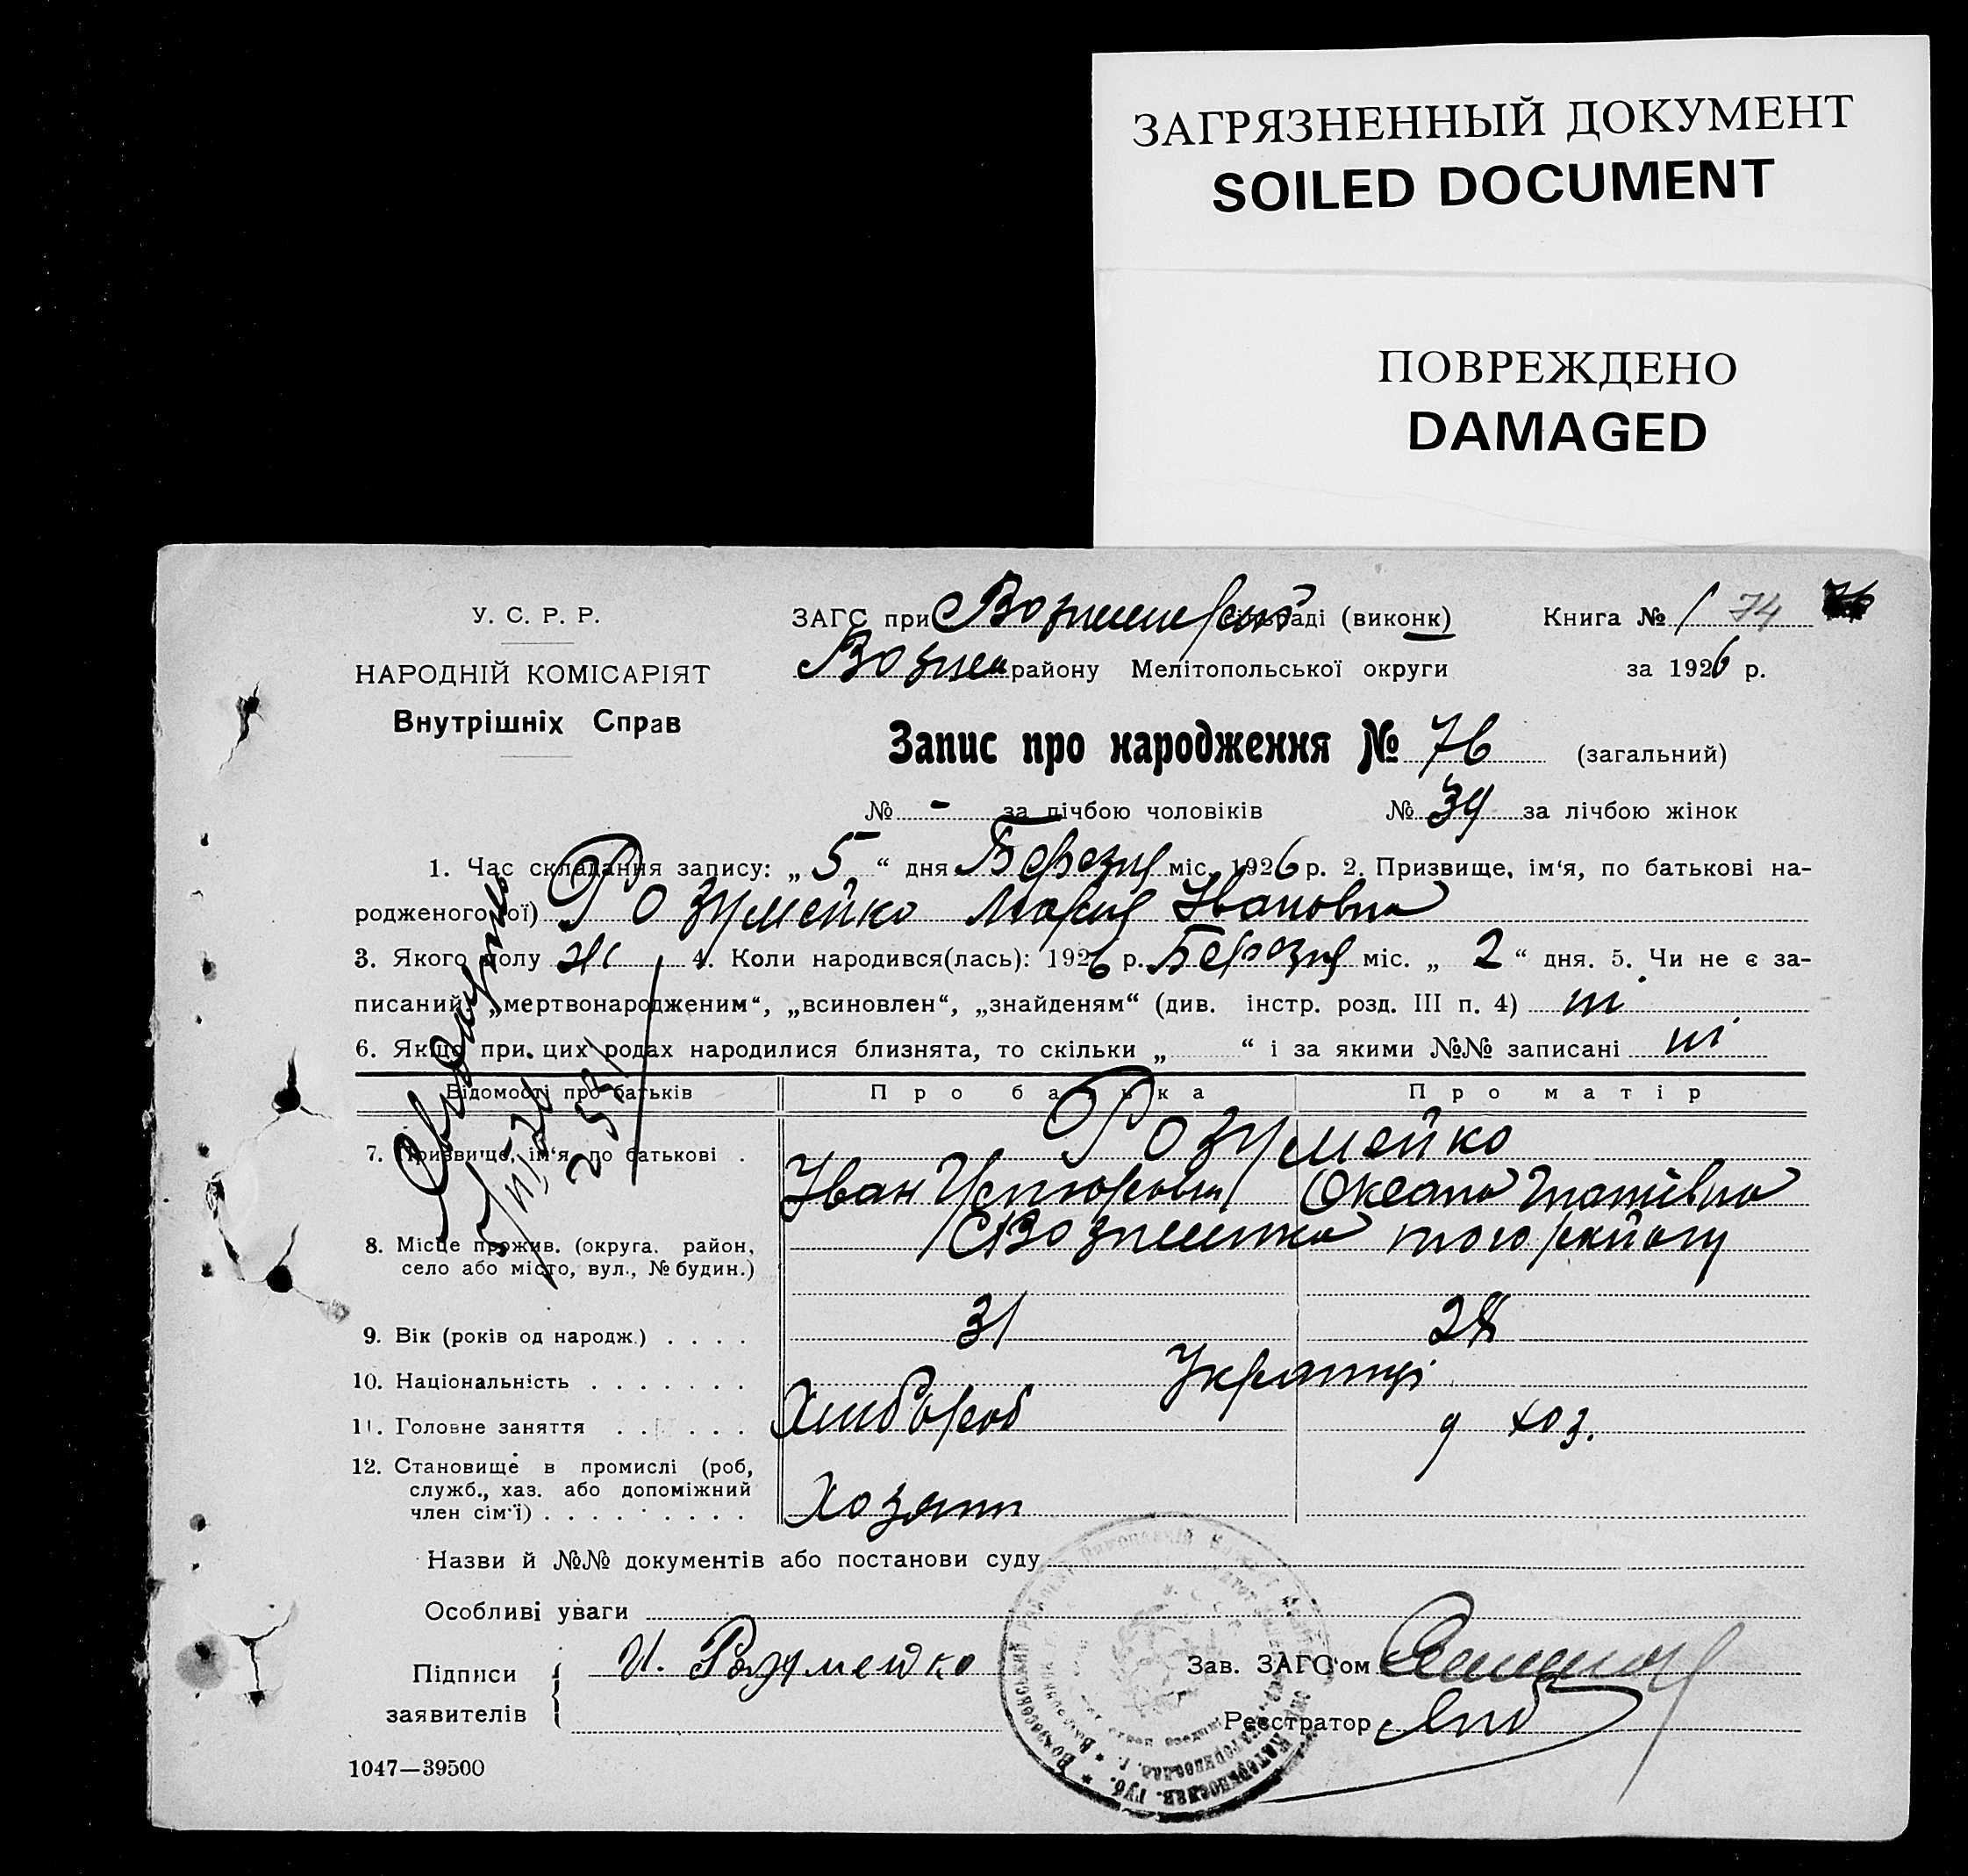 ЗАГРЯЗНЕННЫЙ ДОКУМЕНТ
SOILED DOCUMENT
ПОВРЕЖДЕНО
DAMAGED
У. С. Р. Р.
НАРОДНІЙ КОМІСАРІЯТ
Внутрішніх Справ
ЗАГС при раді (виконк) Книга № 1 74
Возне району Мелітопольської округи за 1926 р.
Запис про народження № 76 (загальний)
№ - за лічбою чоловіків № 39 за лічбою жінок
1. Час складання запису: „ 5 “ дня Березня міс. 1926 р. 2. Призвище, ім‘я, по батькові на-
родженого(ої) Розумейко Марія Івановна
3. Якого полу ж 4. Коли народився(лась): 1926 р. Березня міс. „ 2 “ дня. 5. Чи не є за-
писаний „мертвонародженим“, „всиновлен“, „знайденям“ (див. інстр. розд. III п. 4) ні
6. Якщо при. цих родах народилися близнята, то скільки „ “ і за якими №№ записані ні
Відомості про батьків Про батька Про матір
7. Призвище, ім‘я, по батькові . Розумейко
Іван Оксана
8. Місце прожив. (округа. район, Вознесенка того району
село або місто, вул., № будин.)
9. Вік (років од народж.) . . . . 31 28
10. Національність . . . . . . . Українці
11. Головне заняття . . . . . . Хлібороб д хоз.
12. Становище в промислі (роб,
служб., хаз. або допоміжний
член сім‘ї) . . . . . . . . . Хозяїн
Назви й №№ документів або постанови суду
Особливі уваги
Підписи И. Розумейко Зав. ЗАГС‘ом
заявителів Реєстратор
1047—39500